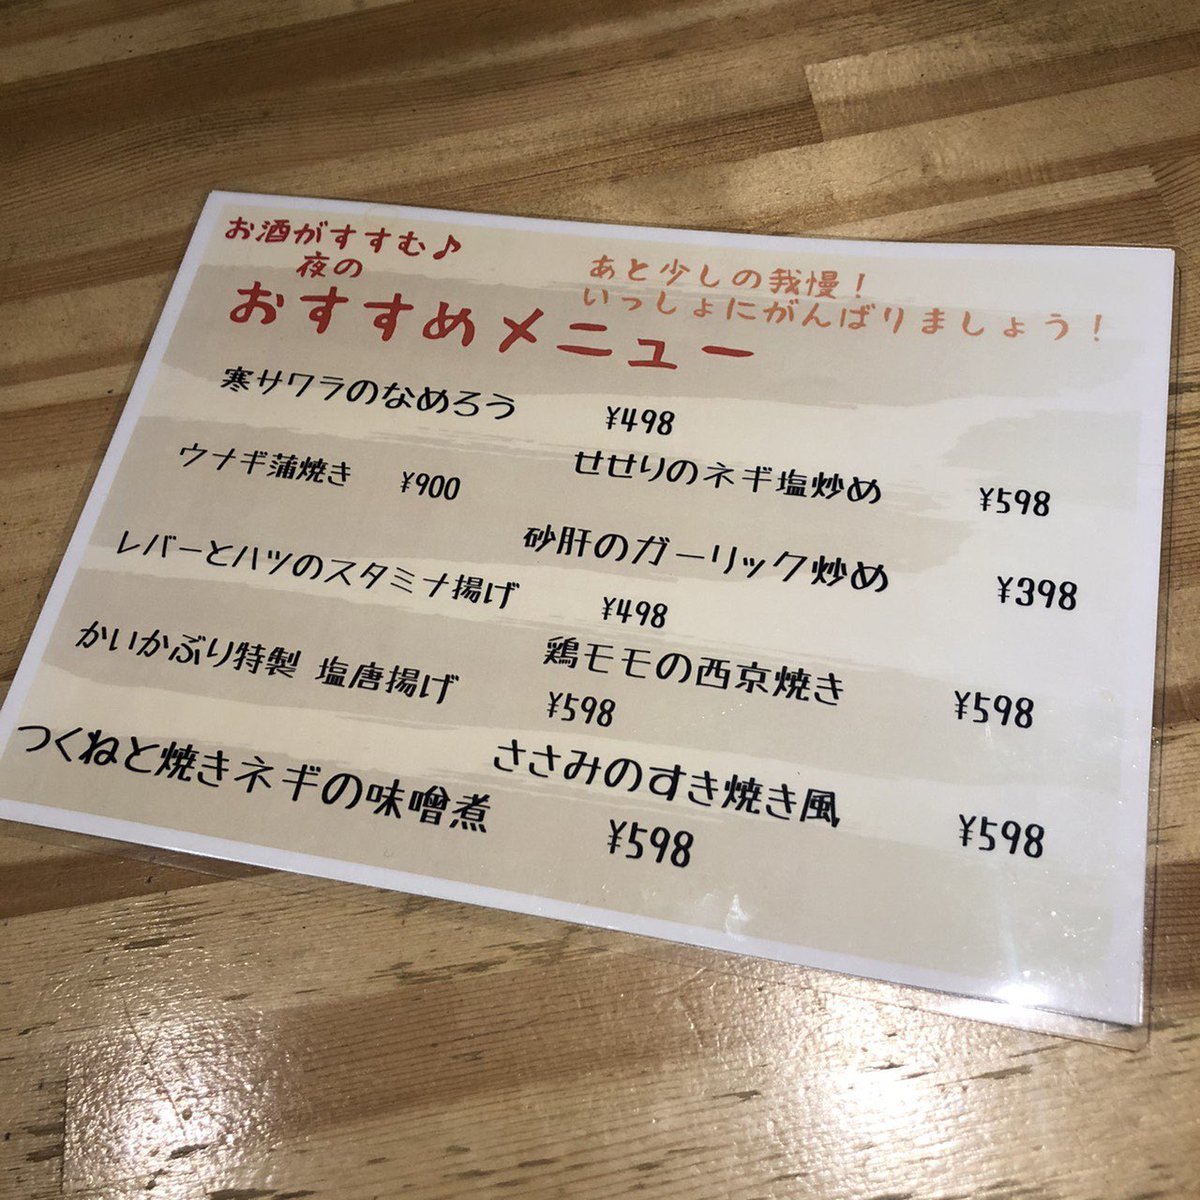 お酒がすすむ♪
夜の
おすすめメニュー
あと少しの我慢！
いっしょにがんばりましょう！
寒サワラのなめろう ¥498
ウナギ蒲焼き ¥900
レバーとハツのスタミナ揚げ ¥498
かいかぶり特製 塩唐揚げ ¥598
つくねと焼きネギの味噌煮 ¥598
せせりのネギ塩炒め ¥598
砂肝のガーリック炒め ¥398
鶏モモの西京焼き ¥598
ささみのすき焼き風 ¥598